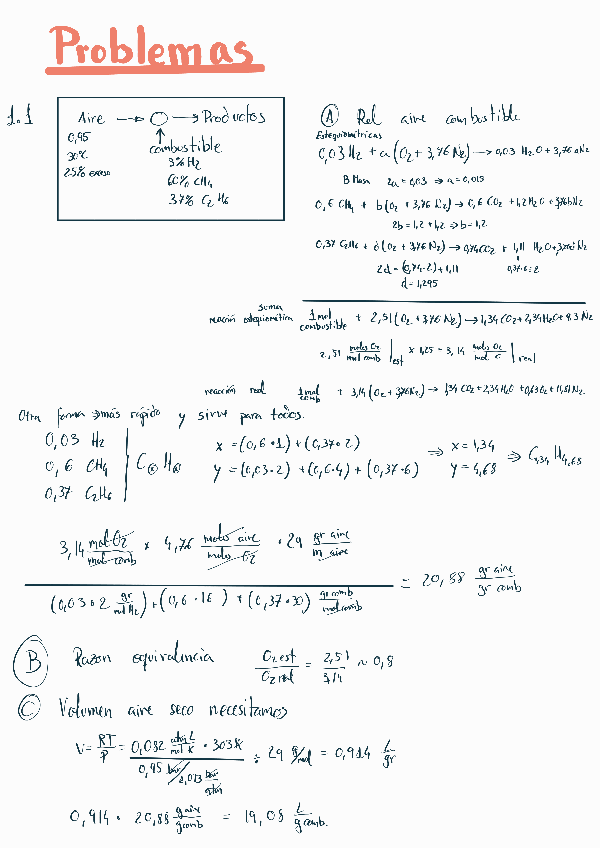 Problemas
1.1
Aire → Productos
0,95
30ºC
25% exceso
combustible
3% H2
60% CH4
37% C2H6
A Rel aire combustible
Estequiométricas
0,03 H2 + a(O2 + 3,76 N2) → 0,03 H2O + 3,76 a N2
B Masa 2a = 0,03 ⇒ a = 0,015
0,6 CH4 + b(O2 + 3,76 N2) → 0,6 CO2 + 1,2 H2O + 3,76 b N2
2b = 1,2 + 1,2 ⇒ b = 1,2
0,37 C2H6 + d(O2 + 3,76 N2) → 0,74 CO2 + 1,11 H2O + 3,76 d N2
2d = (0,74·2) + 1,11
0,37·6:2
d = 1,295
suma
reacción estequiométrica 1 mol combustible + 2,51(O2 + 3,76 N2) → 1,34 CO2 + 2,34 H2O + 9,3 N2
2,51 moles O2 / mol comb | est × 1,25 = 3,14 moles O2 / mol C | real
reacción real 1 mol comb + 3,14(O2 + 3,76 N2) → 1,34 CO2 + 2,34 H2O + 0,63 O2 + 11,81 N2
Otra forma → más rápido y sirve para todos.
0,03 H2
0,6 CH4
0,37 C2H6
C⊗ H⊗
x = (0,6·1) + (0,37·2)
y = (0,03·2) + (0,6·4) + (0,37·6)
⇒ x = 1,34
y = 4,68
⇒ C1,34 H4,68
3,14 mol O2 / mol comb × 4,76 moles aire / moles O2 · 29 gr aire / m aire
(0,03·2 gr / mol H2) + (0,6·16) + (0,37·30) gr comb / mol comb
= 20,88 gr aire / gr comb
B Razon equivalencia O2 est / O2 real = 2,51 / 3,14 ≈ 0,8
C Volumen aire seco necesitamos
V = RT / P = 0,082 atm L / mol K · 303 K / 0,95 bar / 1,013 bar / atm : 29 g/mol = 0,914 L / gr
0,914 · 20,88 g aire / g comb = 19,08 L / g comb.